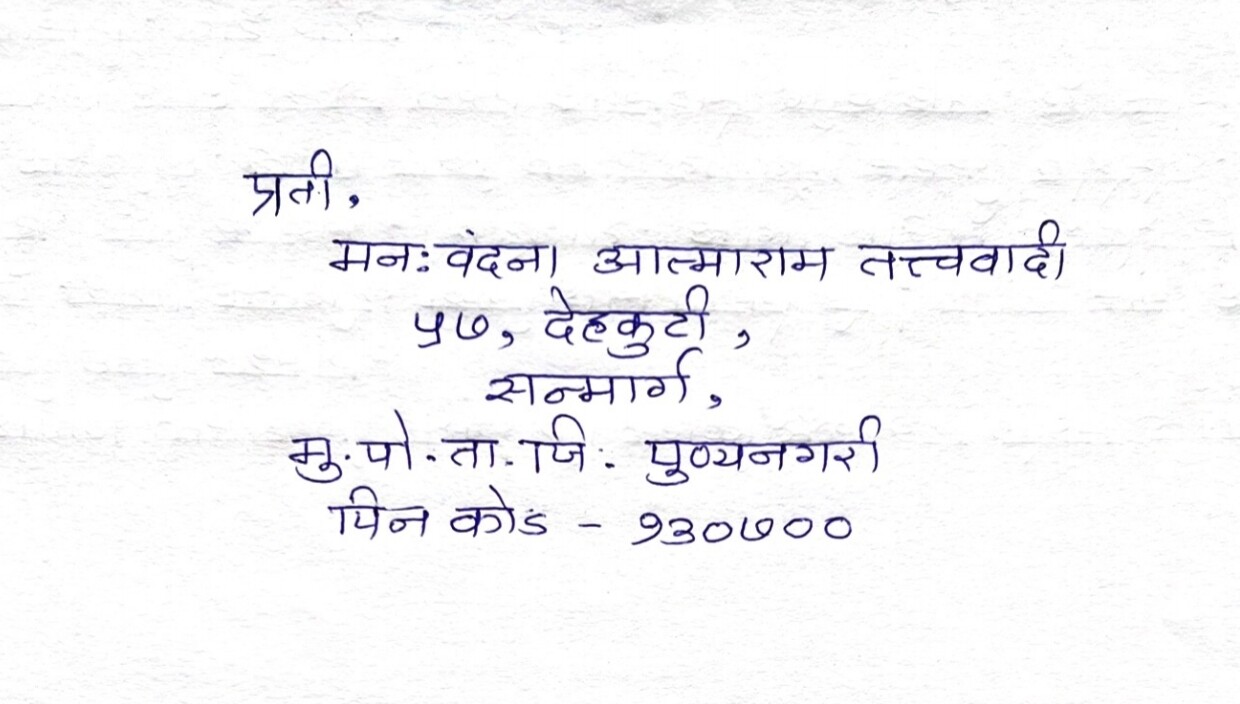 प्रती,
मनःवंदना आत्माराम तत्त्ववादी
५७, देहकुटी,
सन्मार्ग,
मु.पो.ता.जि. पुण्यनगरी
पिन कोड - १३०७००